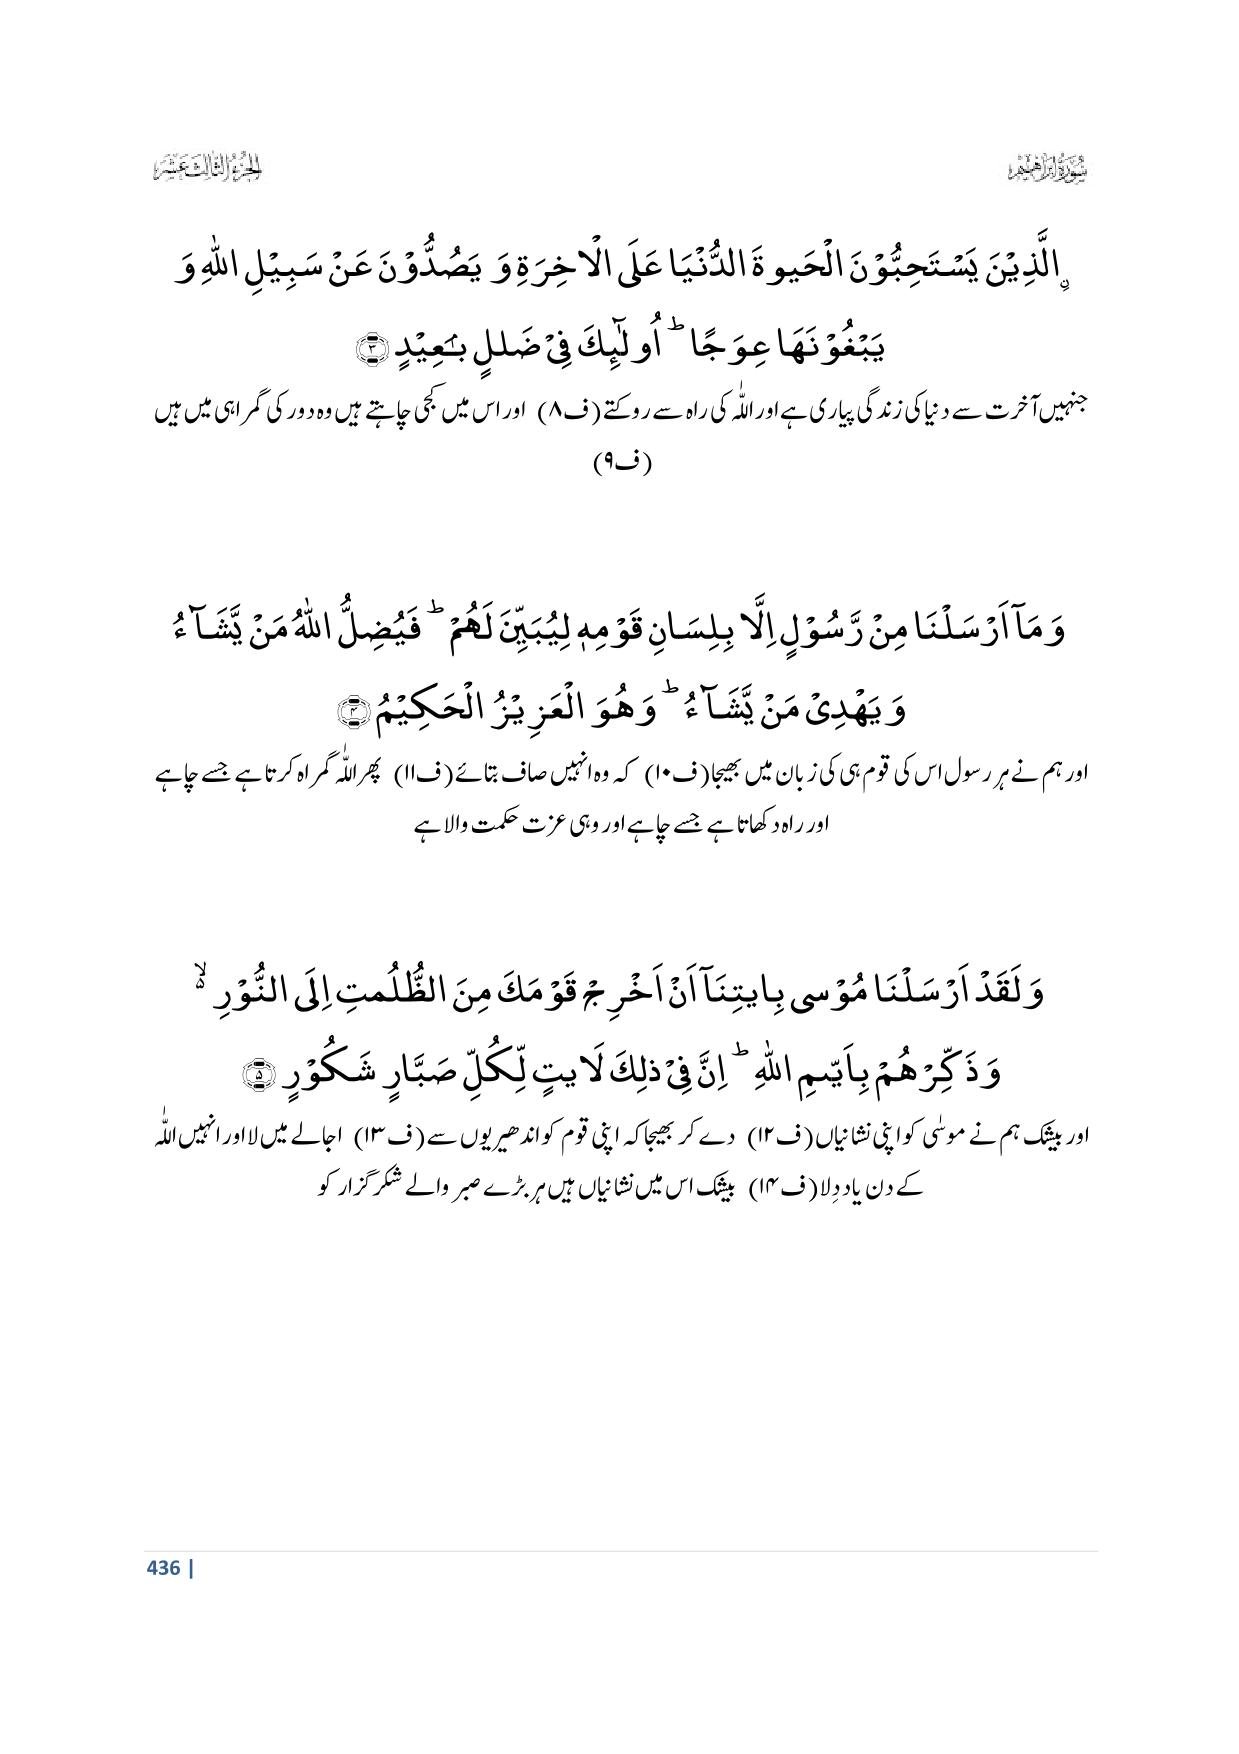 سُوْرَةُ اِبْرٰهِيْم
الجزء الثالث عشر
ۣالَّذِيْنَ يَسْتَحِبُّوْنَ الْحَيوةَ الدُّنْيَا عَلَى الْاخِرَةِ وَ يَصُدُّوْنَ عَنْ سَبِيْلِ اللهِ وَ
يَبْغُوْنَهَا عِوَجًا ؕ اُولٰٓئِكَ فِيْ ضَللٍ بَعِيْدٍ ﴿۳﴾
جنہیں آخرت سے دنیا کی زندگی پیاری ہے اور اللہ کی راہ سے روکتے (ف۸) اور اس میں کجی چاہتے ہیں وہ دور کی گمراہی میں ہیں
(ف۹)
وَ مَآ اَرْسَلْنَا مِنْ رَّسُوْلٍ اِلَّا بِلِسَانِ قَوْمِهٖ لِيُبَيِّنَ لَهُمْ ؕ فَيُضِلُّ اللهُ مَنْ يَّشَآءُ
وَ يَهْدِيْ مَنْ يَّشَآءُ ؕ وَ هُوَ الْعَزِيْزُ الْحَكِيْمُ ﴿۴﴾
اور ہم نے ہر رسول اس کی قوم ہی کی زبان میں بھیجا (ف۱۰) کہ وہ انہیں صاف بتائے (ف۱۱) پھر اللہ گمراہ کرتا ہے جسے چاہے
اور راہ دکھاتا ہے جسے چاہے اور وہی عزت حکمت والا ہے
وَ لَقَدْ اَرْسَلْنَا مُوْسى بِايتِنَآ اَنْ اَخْرِجْ قَوْمَكَ مِنَ الظُّلُمتِ اِلَى النُّوْرِ ۙ۬
وَ ذَكِّرْهُمْ بِاَيّىمِ اللهِ ؕ اِنَّ فِيْ ذلِكَ لَايتٍ لِّكُلِّ صَبَّارٍ شَكُوْرٍ ﴿۵﴾
اور بیشک ہم نے موسٰی کو اپنی نشانیاں (ف۱۲) دے کر بھیجا کہ اپنی قوم کو اندھیریوں سے (ف۱۳) اجالے میں لا اور انہیں اللہ
کے دن یاد دِلا (ف۱۴) بیشک اس میں نشانیاں ہیں ہر بڑے صبر والے شکر گزار کو
436 |